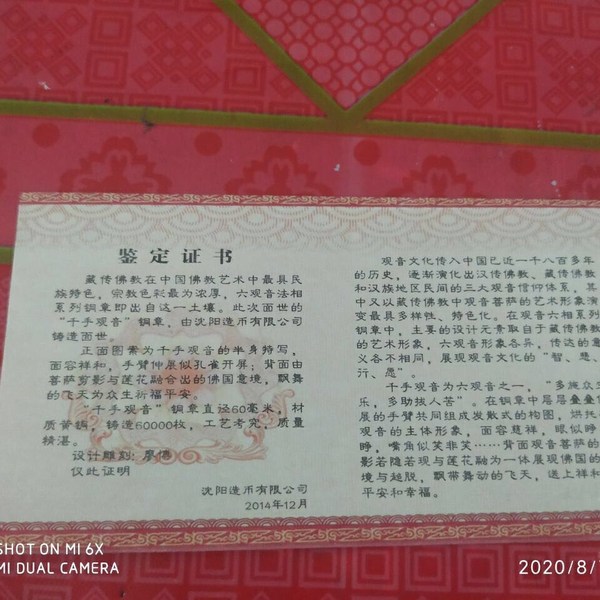 鉴定证书
藏传佛教在中国佛教艺术中最具民
族特色，宗教色彩最为浓厚，六观音法相
系列铜章即出自这一土壤。此次面世的
“千手观音”铜章，由沈阳造币有限公司
铸造面世。
正面图案为千手观音的半身特写，
面容祥和，手臂伸展似孔雀开屏；背面由
菩萨剪影与莲花融合出的佛国意境，飘舞
的飞天为众生祈福平安。
千手观音”铜章直径60毫米，材
质黄铜，铸造60000枚，工艺考究，质量
精湛。
设计雕刻：廖博
仅此证明
沈阳造币有限公司
2014年12月
观音文化传入中国已近一千八百多年
的历史，逐渐演化出汉传佛教、藏传佛教
和汉族地区民间的三大观音信仰体系，其
中又以藏传佛教中观音菩萨的艺术形象演
变最具多样性、特色化。在观音六相系列
铜章中，主要的设计元素取自于藏传佛教
的艺术形象，六观音形象各异，传达的意
义各不相同，展现观音文化的“智、慧、
行、愿”。
千手观音为六观音之一，“多施众生
乐，多助拔人苦”。在铜章中层层叠叠
展的手臂共同组成发散式的构图，烘托
观音的主体形象，面容慈祥，眼似睁
睁，嘴角似笑非笑……背面观音菩萨的
影若隐若现与莲花融为一体展现佛国的
境与超脱，飘带舞动的飞天，送上祥和
平安和幸福。
SHOT ON MI 6X
MI DUAL CAMERA
2020/8/